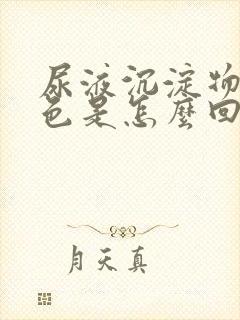 尿液沉淀物
色是怎麼回
月天真